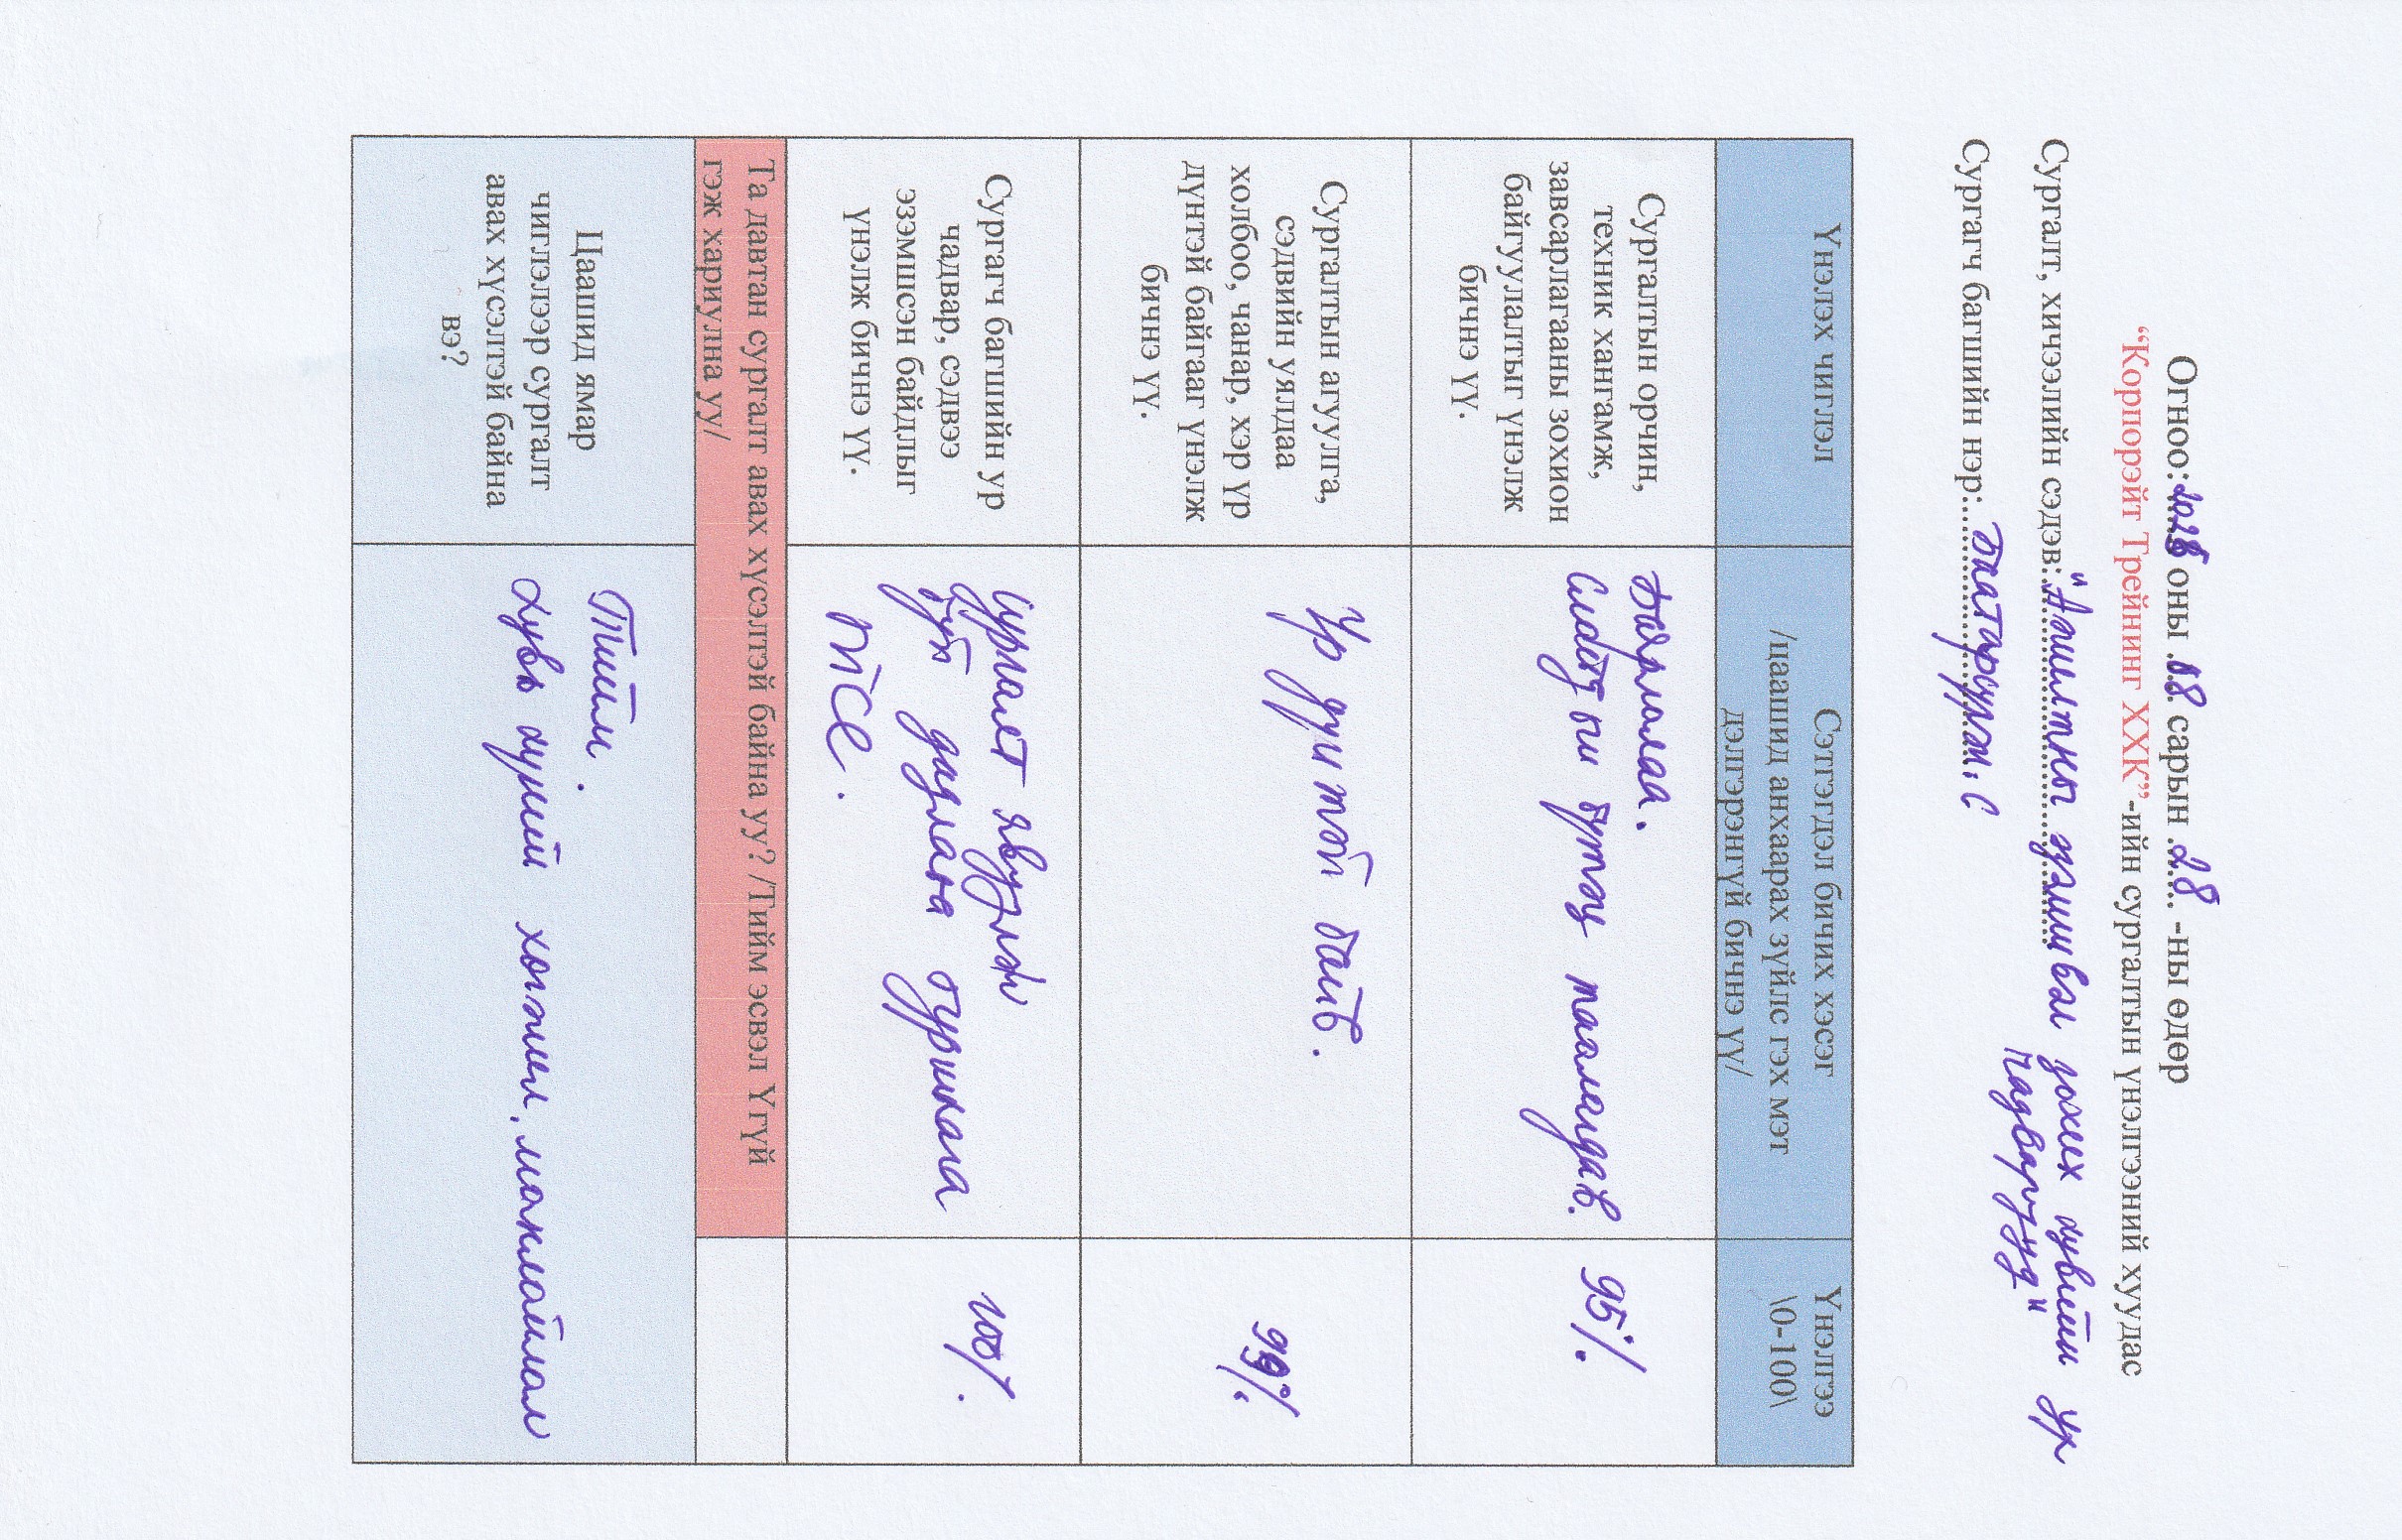 Огноо: 2026 оны 18 сарын 28 -ны өдөр
“Корпорэйт Трейнинг ХХК”-ийн сургалтын үнэлгээний хуудас
Сургалт, хичээлийн сэдэв: "Ажилтны эзэмшвэл зохих хувийн ур
чадварууд"
Сургагч багшийн нэр:
Үнэлэх чиглэл
Сэтгэгдэл бичих хэсэг
/цаашид анхаарах зүйлс гэх мэт
дэлгэрэнгүй бичнэ үү/
Үнэлгээ
\0-100\
Сургалтын орчин,
техник хангамж,
завсарлагааны зохион
байгуулалтыг үнэлж
бичнэ үү.
Баярлалаа.
таалагдав.
95%.
Сургалтын агуулга,
сэдвийн уялдаа
холбоо, чанар, хэр үр
дүнтэй байгааг үнэлж
бичнэ үү.
Үр дүнтэй байв.
99%.
Сургагч багшийн ур
чадвар, сэдвээ
эзэмшсэн байдлыг
үнэлж бичнэ үү.
Сургалт явуулж
буй дадлага туршлага
nice.
100%.
Та давтан сургалт авах хүсэлтэй байна уу? /Тийм эсвэл Үгүй
гэж хариулна уу/
Цаашид ямар
чиглэлээр сургалт
авах хүсэлтэй байна
вэ?
Тийм.
Хувь хүний хөгжил, манлайлал